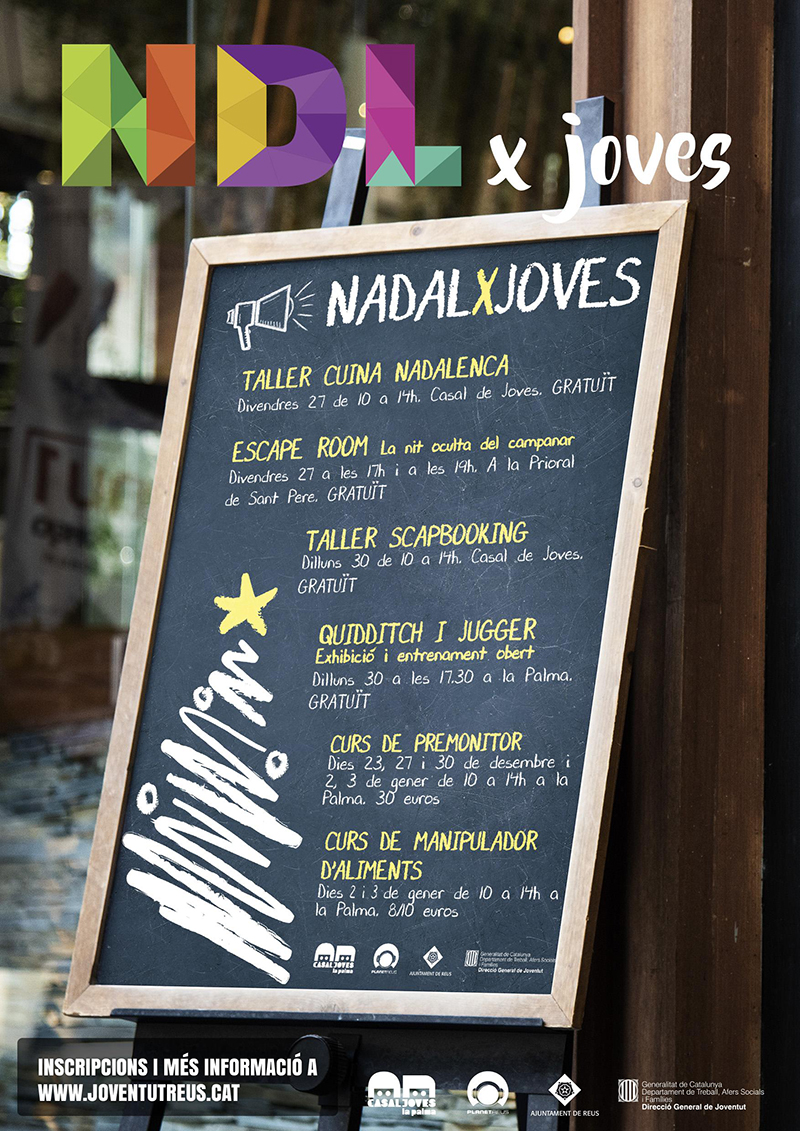 NDL x joves
NADALXJOVES
TALLER CUINA NADALENCA
Divendres 27 de 10 a 14h. Casal de Joves. GRATUÏT
ESCAPE ROOM La nit oculta del campanar
Divendres 27 a les 17h i a les 19h. A la Prioral
de Sant Pere. GRATUÏT
TALLER SCAPBOOKING
Dilluns 30 de 10 a 14h. Casal de Joves.
GRATUÏT
QUIDDITCH I JUGGER
Exhibició i entrenament obert
Dilluns 30 a les 17.30 a la Palma.
GRATUÏT
CURS DE PREMONITOR
Dies 23, 27 i 30 de desembre i
2, 3 de gener de 10 a 14h a la
Palma. 30 euros
CURS DE MANIPULADOR
D'ALIMENTS
Dies 2 i 3 de gener de 10 a 14h a
la Palma. 8/10 euros
CASAL JOVES
la palma
PLANETREUS
AJUNTAMENT DE REUS
Generalitat de Catalunya
Departament de Treball, Afers Socials
i Famílies
Direcció General de Joventut
INSCRIPCIONS I MÉS INFORMACIÓ A
WWW.JOVENTUTREUS.CAT
CASAL JOVES
la palma
PLANETREUS
AJUNTAMENT DE REUS
Generalitat de Catalunya
Departament de Treball, Afers Socials
i Famílies
Direcció General de Joventut